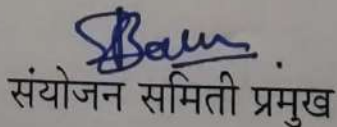 संयोजन समिती प्रमुख